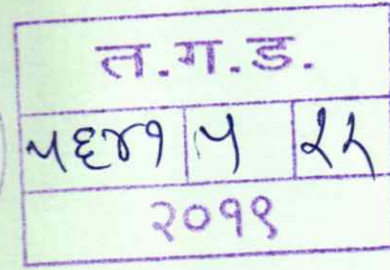 त.ग.ड.
५६४१ ५ २२
२०१९